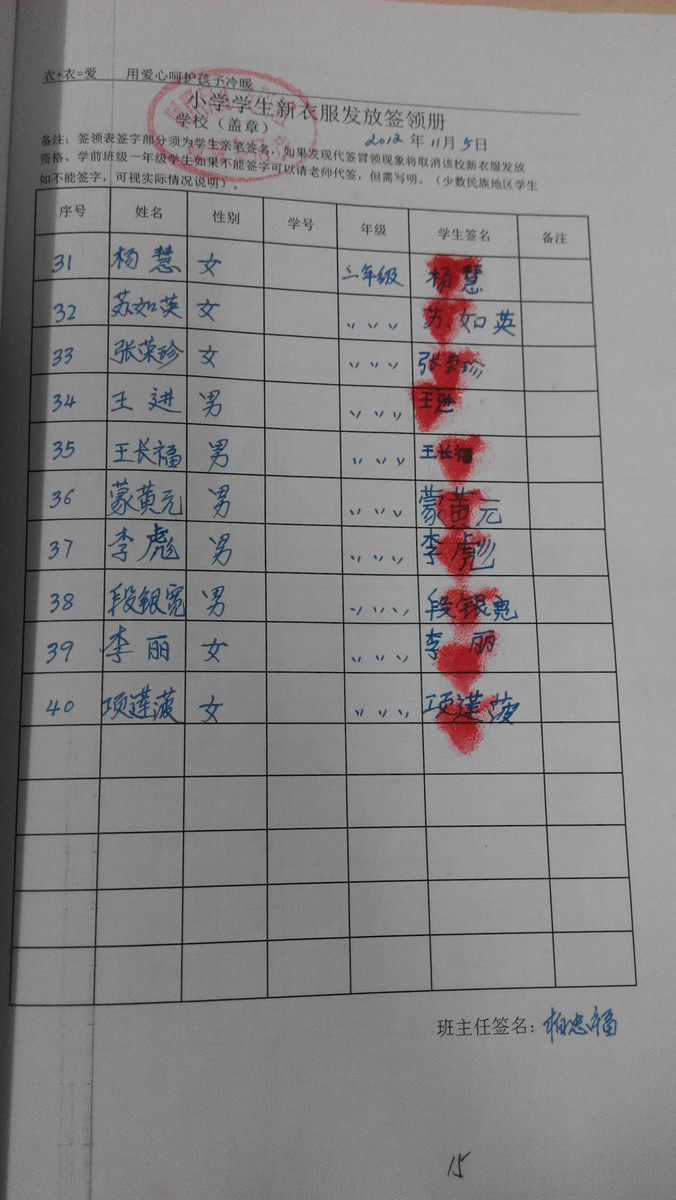 衣+衣=爱 用爱心呵护孩子冷暖
小学学生新衣服发放签领册
学校（盖章） 2012 年 11 月 5 日
备注：签领表签字部分须为学生亲笔签名，如果发现代签冒领现象将取消该校新衣服发放
资格。学前班级一年级学生如果不能签字可以请老师代签，但需写明。（少数民族地区学生
如不能签字，可视实际情况说明）。
序号 姓名 性别 学号 年级 学生签名 备注
31 杨慧 女 二年级 杨慧
32 苏如英 女 〃〃〃 苏如英
33 张荣珍 女 〃〃〃 张荣珍
34 王进 男 〃〃〃 王进
35 王长福 男 〃〃〃 王长福
36 蒙黄元 男 〃〃〃 蒙黄元
37 李彪 男 〃〃〃 李彪
38 段银宽 男 〃〃〃 段银宽
39 李丽 女 〃〃〃 李丽
40 项莲菠 女 〃〃〃 项莲菠
班主任签名：柏忠福
15